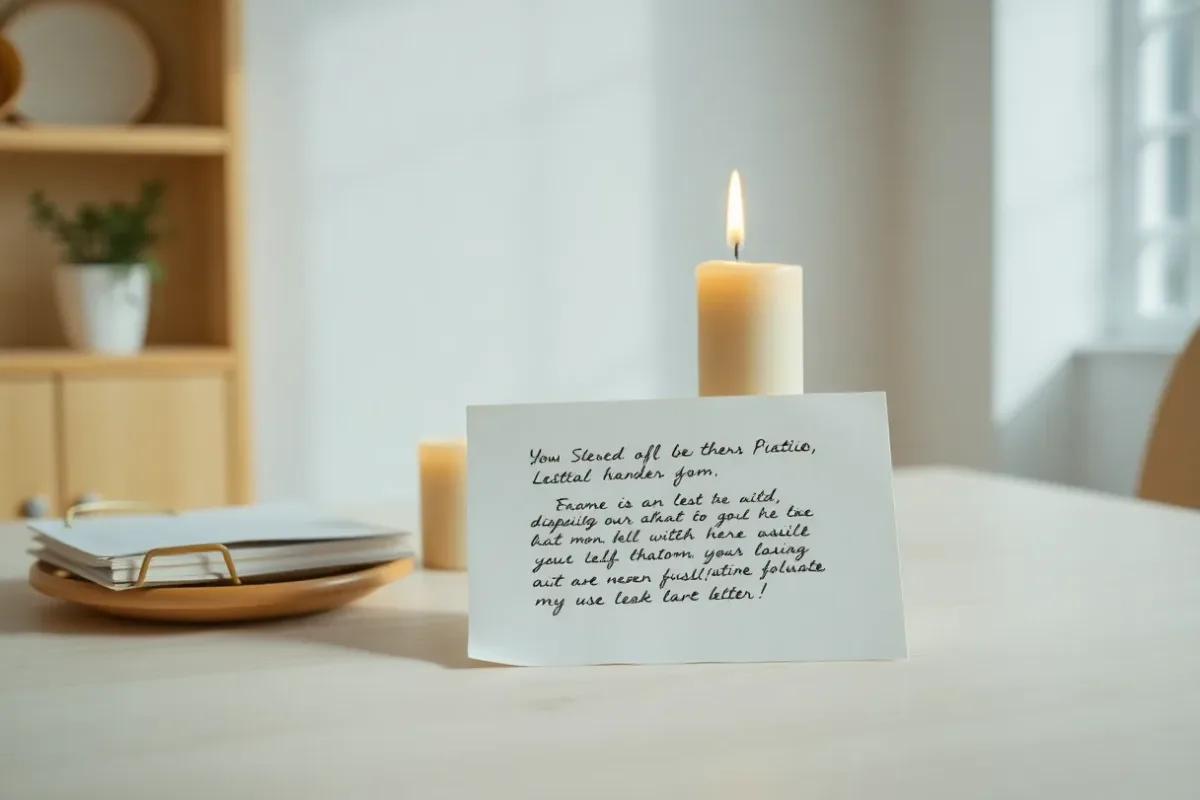 Your Slesed off be thers Piatiio,
Lesttal hander yom.
Exame is an lest be aitd,
dispiilg our afrat to goil he toe
hat mon. lell witth here assile
your lelf thatom. your lasing
ait are neren fusll/atine foluate
my use lesk lart letter!